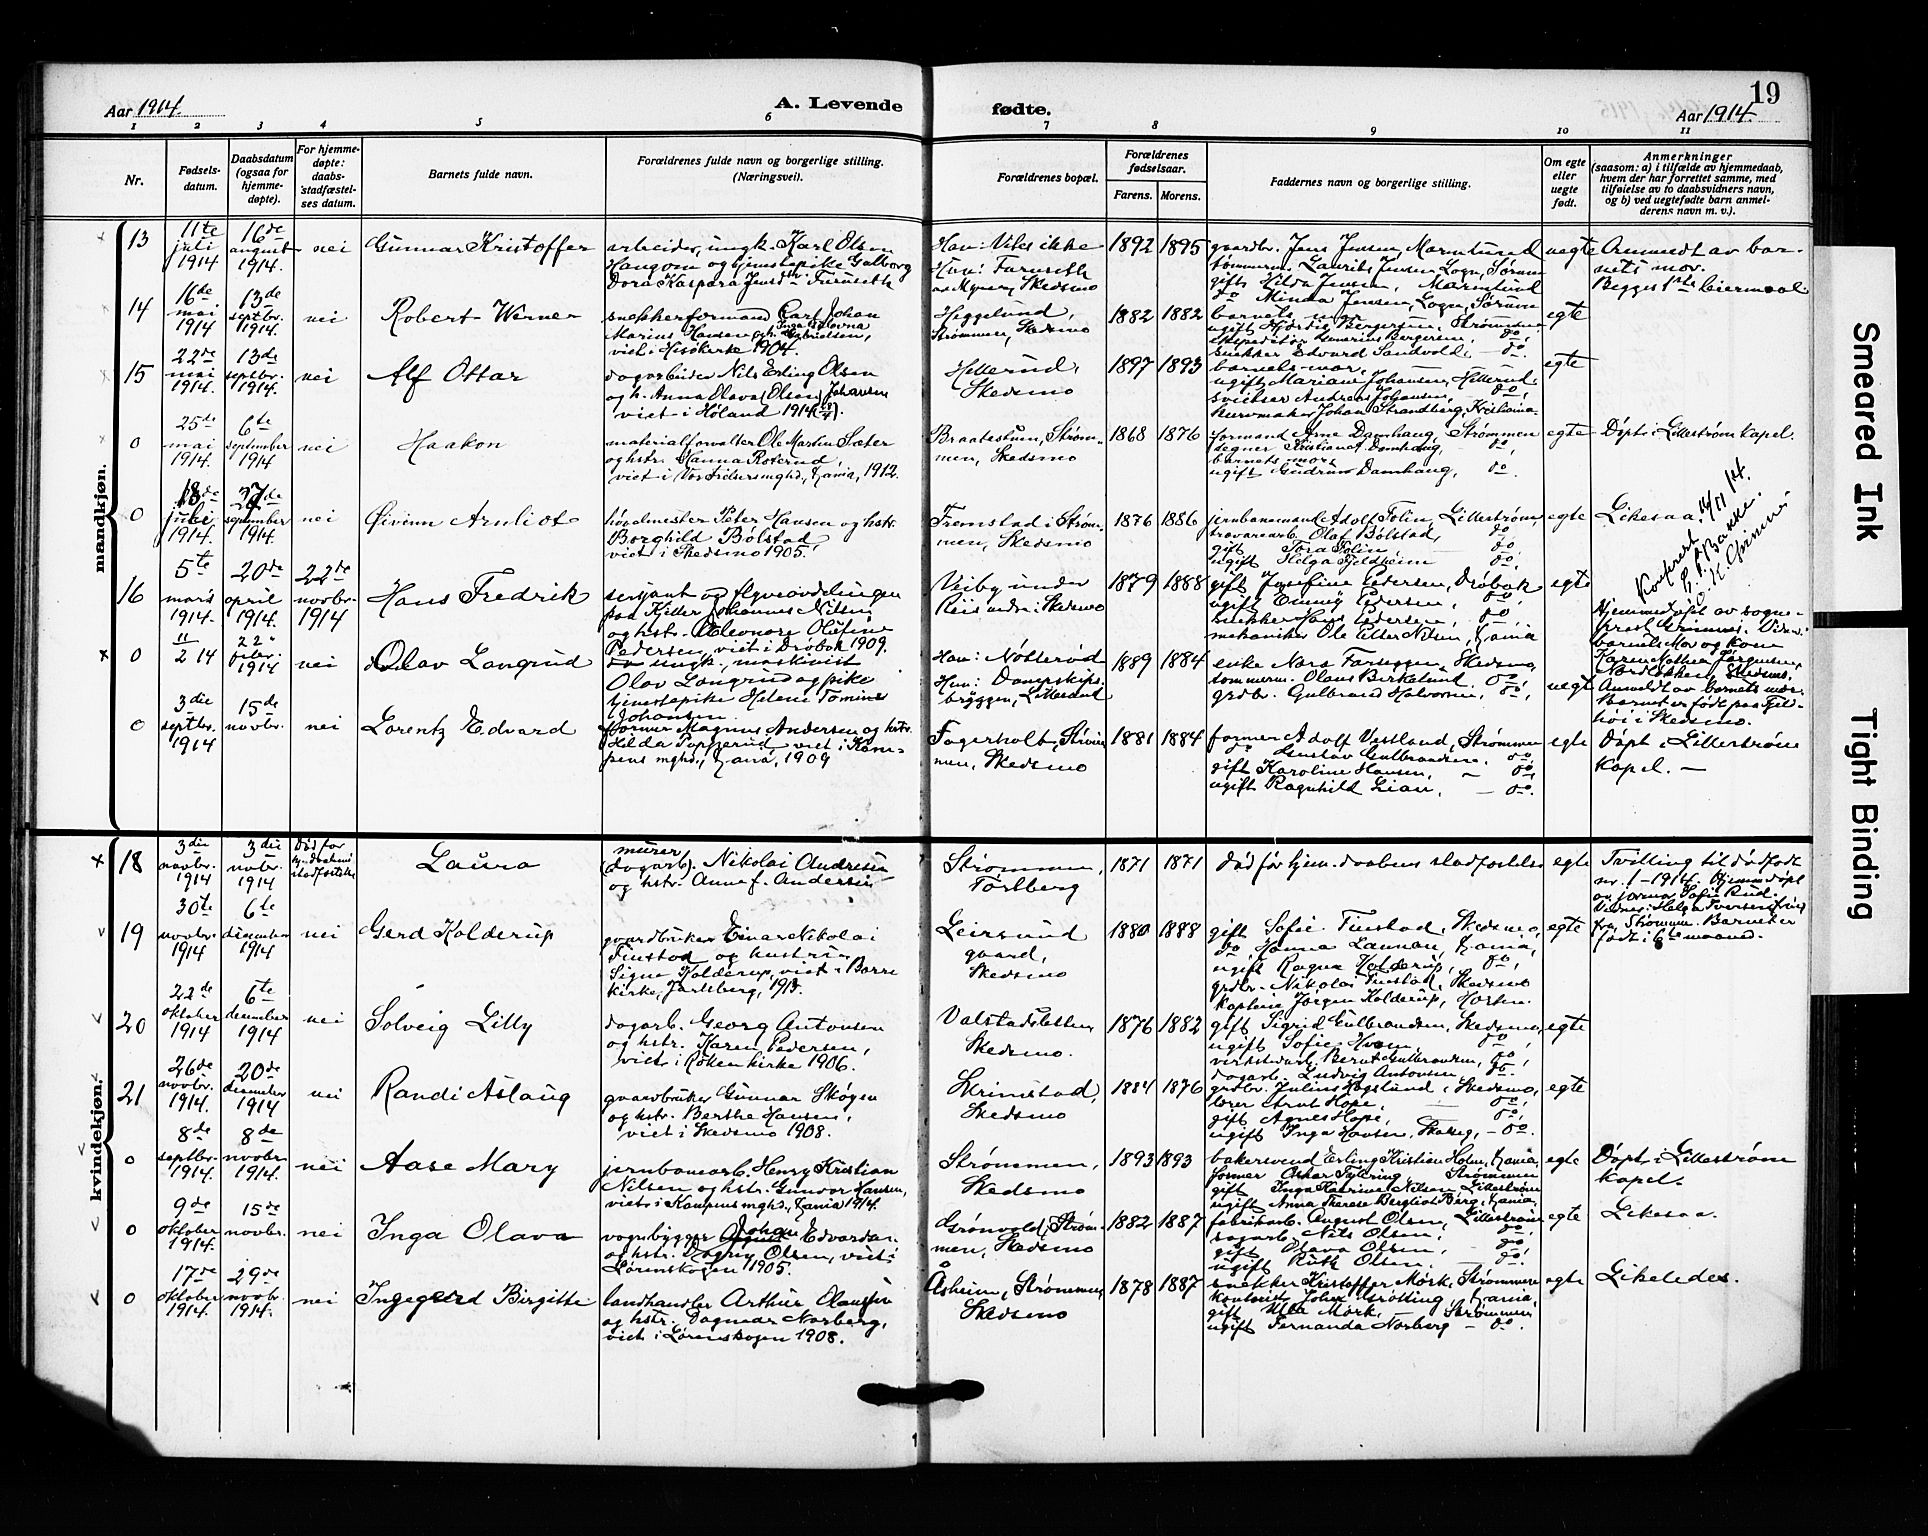 19
Aar 1914.
A. Levende
fødte.
Aar 1914.
1 2 3 4 5 6 7 8 9 10 11
Nr.
Fødsels-
datum.
Daabsdatum
(ogsaa for
hjemme-
døpte).
For hjemme-
døpte:
daabs-
stadfæstel-
ses datum.
Barnets fulde navn.
Forældrenes fulde navn og borgerlige stilling.
(Næringsvei).
Forældrenes bopæl.
Forældrenes
fødselsaar.
Farens. Morens.
Faddernes navn og borgerlige stilling.
Om egte
eller
uegte
født.
Anmerkninger
(saasom: a) i tilfælde av hjemmedaab,
hvem der har forrettet samme, med
tilføielse av to daabsvidners navn,
og b) ved uegtefødte barn anmel-
derens navn m. v.).
mandkjøn.
13
11te
juli
1914
16de
august
1914.
nei
Gunnar Kristoffer
arbeider, ungk. Karl Olsen
Haugom og tjenestepike Galborg
Dora Kaspara Jensdtr. Furuseth
Han: Vites ikke
Hun: Furuseth
av Myrer, Skedsmo
1892 1895
gaardbr. Jens Jensen, Marmlund
tømmerm. Laurits Jensen Logn, Sørum
gift Hilda Jensen, Marmlund
do Minda Jensen, Logn, Sørum
uegte
Anmeldt av bar-
nets mor.
Begges 1ste leiermaal
14
16de
mai
1914
13de
septbr.
1914.
nei
Robert Werner
snekkerformand Carl Johan
Marius Hansen og h. Inga Polovna Gabrielsen,
viet i Hisøkirke 1904.
Heggelund,
Strømmen, Skedsmo
1882 1882
barnets mor
ugift Hjørdis Bergersen, Strømmen
ekspeditør Genarius Bergersen, do.
snekker Edvard Sandvold, - do.
egte
15
22de
mai
1914.
13de
septbr.
1914.
nei
Alf Ottar
dagarbeider Nils Erling Olsen
og h. Anna Olava (Olsen) Johansen
viet i Høland 1914
Hellerud,
Skedsmo
1897 1893
barnets mor,
ugift Mariam Johansen, Hellerud
sveitser Andreas Johansen, do
kurvmaker Johan Strandberg, Kristiania
egte
0
25de
mai
1914.
6te
september
1914
nei
Haakon
materialforvalter Ole Martin Sæter
og hstr. Hanna Roterud,
viet i Vor Frelsers mgh., Kania, 1912.
Braatestuen, Strøm-
men, Skedsmo
1868 1876
formand Arne Damhaug, Strømmen
tegner Kristian Damhaug, do,
barnets mor
ugift Gudrun Damhaug, do.
egte
Døpt i Lillestrøm Kapel.
0
18de
juli
1914.
27de
september
1914.
nei
Øivinn Arnliot
høvelmester Peter Hansen og hstr.
Borghild Bølstad
viet i Skedsmo 1905.
Fremstad i Strøm-
men, Skedsmo
1876 1886
jernbanemand Adolf Folin, Lillestrøm,
travarearb. Olaf Bølstad, do,
gift Tora Folin, do,
ugift Helga Fjeldheim do.
egte
Likesaa.
Konferert 14/11 14.
E. S. Bakke.
O. K. Grimnes
16
5te
mars
1914.
20de
april
1914.
22de
novbr.
1914
Hans Fredrik
sersjant og flyveavdelingen
paa Kjeller Johannes Nilsen
og hstr. Eleonore Olufine
Pedersen, viet i Drøbak 1909.
Veiby under
Riis søndre i Skedsmo
1879 1888
gift Josefine Pedersen, Drøbak
ugift Emmy Pedersen, do,
snekker Hans Pedersen, do,
mekaniker Ole Peter Nilsen, Kania
egte
Hjemmedøpt av sogne-
prest Grimnes. Vidner:
barnets Mor og kone
Karen Mathea Jørgensen,
Nordlokken, Skedsmo.
0
11
2 14
22.
febr.
1914
nei
Olav Langrud
ungk. maskinist
Olav Langrud og pike
tjenestepike Helene Tomine
Johansen
Han: Nøtterød
Hun: Dampskips-
bryggen, Lillesand
1889 1884
enke Nora Farseggen, Skedsmo,
tømmerm. Olaus Birkelund do,
grdbr. Gulbrand Halvorsen, do,
uegte
Anmeldt av barnets mor.
Barnet er født paa Fjel-
høi i Skedsmo.
0
3die
septbr.
1914
15de
novbr.
nei
Lorentz Edvard
former Magnus Andersen og hstr.
Hilda Poppgerud, viet i Kam-
pens mgh., Kania, 1909
Fagerholt, Strøm-
men, Skedsmo
1881 1884
former Adolf Vestland, Strømmen
do Gustav Gulbrandsen, do,
gift Karoline Hansen, - do,
ugift Ragnhild Lian, - do.
egte
Døpt i Lillestrøm
Kapel. -
kvindekjøn.
18
3die
novbr.
1914
3die
novbr.
1914
Død før
hj. daabens
stadfæstelse
Laura
murer
(dagarb). Nikolai Andresen
og hstr. Anne f. Andersen
Strømmen,
Torlberg
1871 1871
død før hjem. daabens stadfæstelse
egte
Tvilling til dødfødt
nr. 1 - 1914. Hjemmedøpt
av jormor Sofie Ruud.
Vidner: Helga Iversen
fra Strømmen. Barnet er
født i 6te maaned.
19
30te
novbr.
1914
6te
december
1914
nei
Gerd Kolderup
gaardbruker Einar Nikolai
Finstad og hustru
Signe Kolderup, viet i Borre
kirke, Jarlsberg, 1913.
Leirsund
gaard,
Skedsmo
1880 1888
gift Sofie Finstad, Skedsmo,
do, Hanna Laumann, Kania,
ugift Ragna Kolderup, do,
grdbr. Nikolai Finstad, Skedsmo
kaptein Jørgen Kolderup, Horten.
egte
20
22de
oktober
1914
6te
december
1914
nei
Solveig Lilly
dagarb. Georg Antonsen
og hstr. Karen Pedersen,
viet i Røken kirke 1906.
Valstadsletten,
Skedsmo.
1876 1882
gift Sigrid Gulbrandsen, Skedsmo,
ugift Sofie Hvam, do,
verkstedarb. Bernt Gulbrandsen, do,
dagarb. Ludvig Antonsen do.
egte
21
26de
novbr.
1914.
20de
december
1914
nei
Randi Aslaug
gaardbruker Gunnar Skøgen
og hstr. Berthe Hansen,
viet i Skedsmo 1908.
Skrimstad,
Skedsmo
1884 1876
grdbr. Julius Høgslund, Skedsmo,
lærer Arnt Hope, do,
gift Agnes Hope, do,
ugift Inga Hansen, Skaseg, - do.
egte
0
8de
septbr.
1914.
8de
novbr.
1914.
nei
Aase Mary
jernbanearb. Henry Kristian
Nilsen og hstr. Gunvor Hansen,
viet i Kampens mgh., Kania 1914.
Strømmen,
Skedsmo
1893 1893
bakersvend Erling Kristian Holm, Kania,
former Oskar Fyhring Strømmen
gift Inga Katrine Nilsen Lillestrøm
ugift Anna Therese Bergliot Berg, Kania.
egte
Døpt i Lillestrøm
Kapel.
0
9de
oktober
1914.
15de
novbr.
nei
Inga Olava
vognbygger Johan Edvardsen
og hstr. Dagny Olsen, viet i
Lørenskogen 1905.
Grønvold, Strøm-
men, Skedsmo
1882 1887
fabrikarb. August Olsen, Lillestrøm
sagarb. Nils Olsen, do
gift Olava Olsen, do,
ugift Ruth Olsen. do.
egte
Likesaa.
0
17de
oktober
1914.
29de
novbr.
1914.
nei
Ingegerd Birgitte
landhandler Arthur Olaussen
og hstr. Dagmar Norberg,
viet i Lørenskogen 1908.
Åsheim, Strømmen,
Skedsmo
1878 1887
snekker Kristoffer Mørk, Strømmen
kontorist Johan Grøtting, Kania,
gift Mørk, Strømmen
ugift Fernanda Norberg - do.
egte
Likeledes.
Smeared Ink
Tight Binding